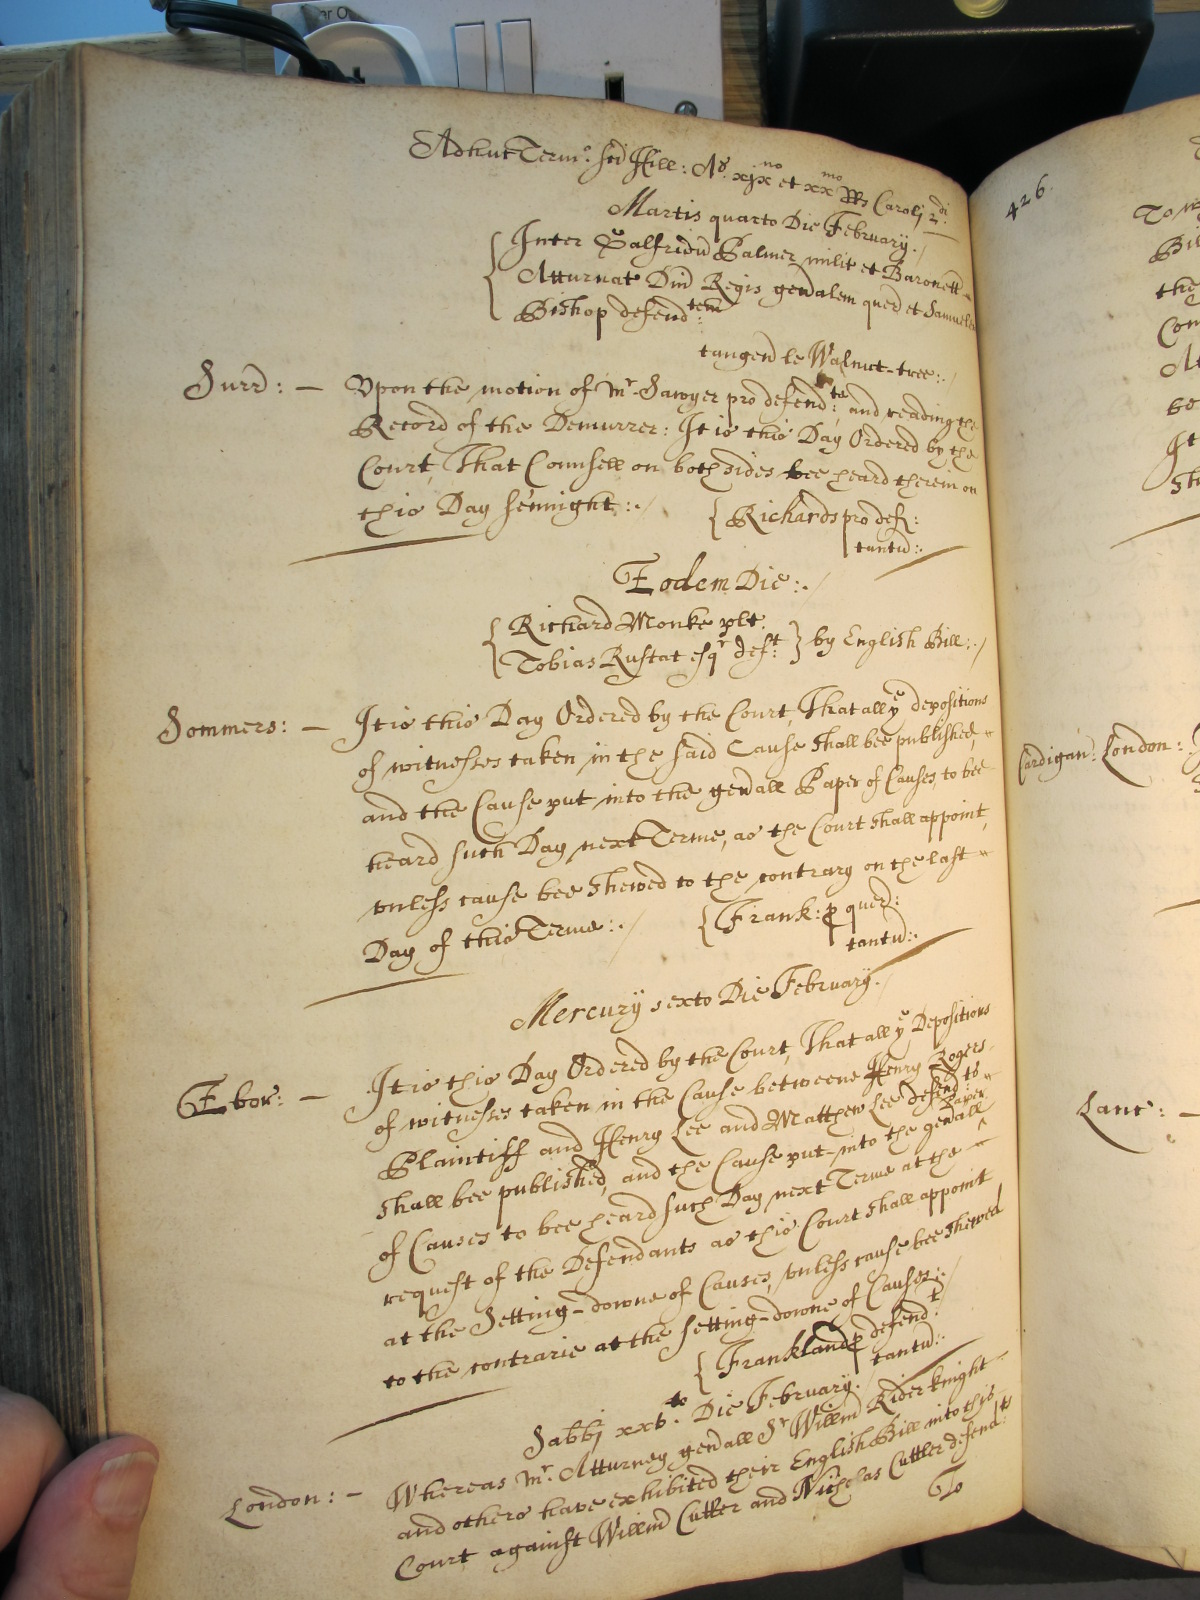 Adhuc Term: sci Hill: Ao. xix no et xx mo Rs Caroli 2 di.
Martis quarto Die February./
Inter Galfridu Palmer milit et Baronett
Atturnat Dni Regis genalem quer et Samuele
Bishop defend tem:
tangen le Walnut-tree:./
Surr: — Upon the motion of Mr. Sawyer pro defend te: and reading the
Record of the Demurrer: It is this Day Ordered by the
Court, That Counsell on both sides bee heard therein on
this Day sennight:./ { Richards pro def:
tantu:.
Eodem Die:./
{ Richard Monke plt.
Tobias Rustat esqr deft: } by English Bill:./
Sommers: — It is this Day Ordered by the Court, That all ye depositions
of witnesses taken in the said Cause shall bee published,
and the Cause put into the genall Paper of Causes, to bee
heard such Day next Terme, as the Court shall appoint,
unless cause bee shewed to the contrary on the last
Day of this Terme:./ { Frank: p quer:
tantu:.
Mercury sexto Die February./
Ebor: — It is this Day Ordered by the Court, That all ye Depositions
of witnesses taken in the Cause betweene Henry Rogers
Plaintiff and Henry Lee and Matthew Lee defend ts
shall bee published, and the Cause put into the genall Paper
of Causes to bee heard such Day next Terme at the
request of the Defendants as this Court shall appoint
at the Setting-downe of Causes, unless cause bee shewed
to the contrarie at the setting-downe of Causes:./
{ Frankland p defend t:
tantu:.
Sabbi xxv to. Die February./
London: — Whereas Mr. Atturney genall Sr Willm Rider knight
and others have exhibited their English Bill into this
Court against Willm Cutler and Nicholas Cuttler defend ts
To
426.
the
Con
Cardigan: London:
Lanc: —